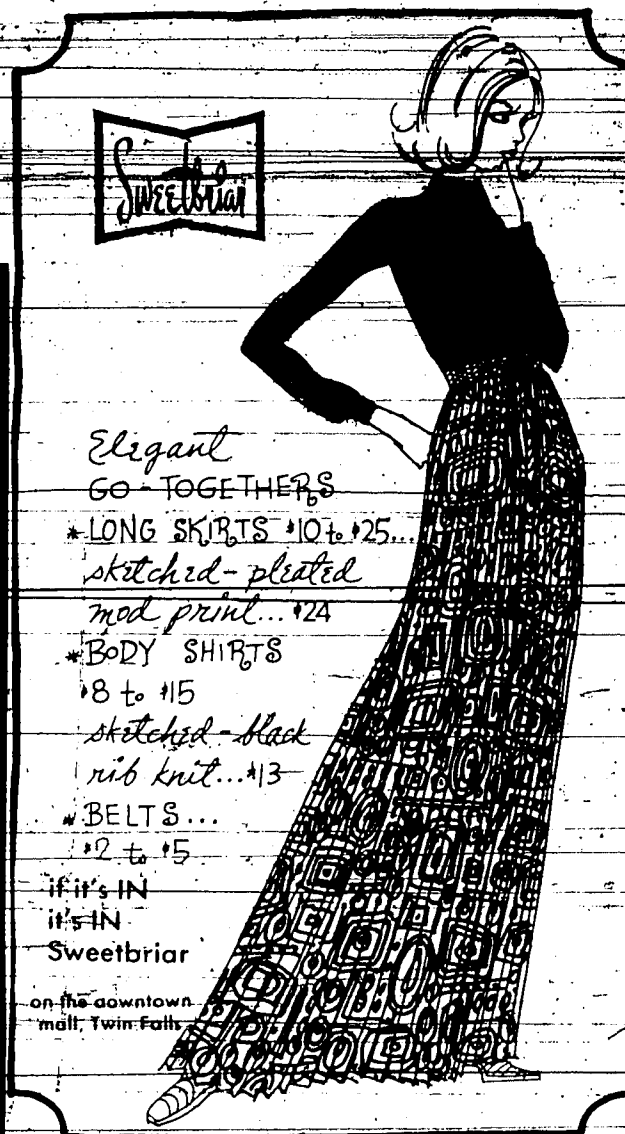 Sweetbriar
Elegant
GO-TOGETHERS
* LONG SKIRTS $10 to $25...
sketched-pleated
mod print... $24
* BODY SHIRTS
$8 to $15
sketched-black
rib knit...$13
* BELTS...
$2 to $5
if it's IN
it's IN
Sweetbriar
on the downtown
mall, Twin Falls